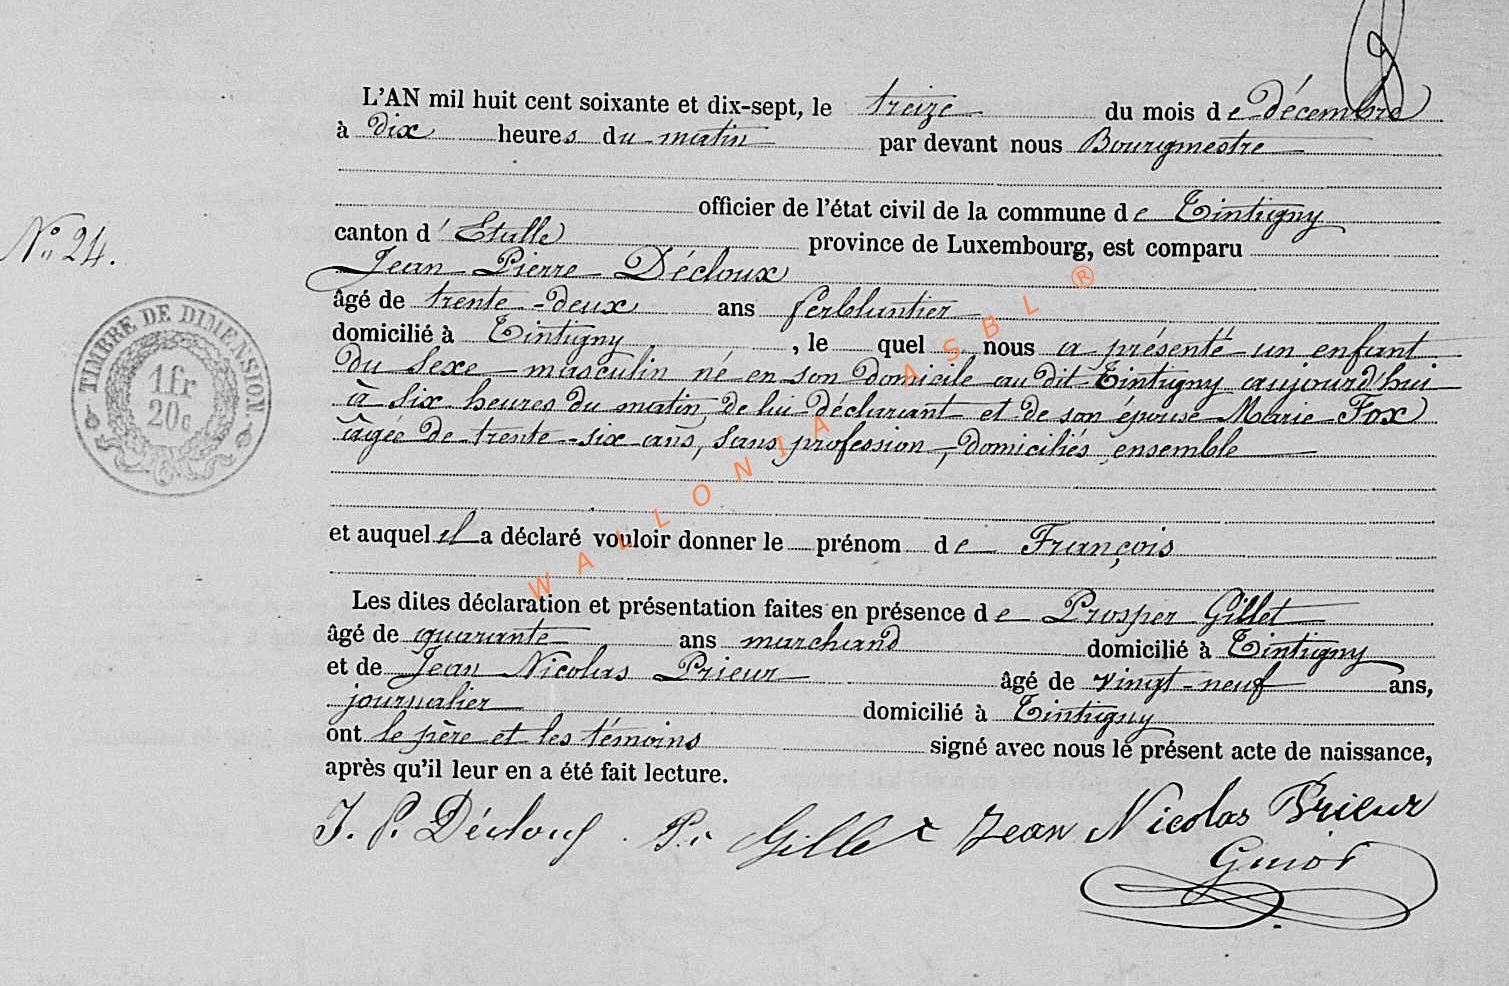 L'AN mil huit cent soixante et dix-sept, le treize du mois de décembre
à dix heures du matin par devant nous Bourgmestre
officier de l'état civil de la commune de Tintigny
N° 24.
canton d'Etalle province de Luxembourg, est comparu
Jean Pierre Décloux
âgé de trente-deux ans ferblantier
domicilié à Tintigny, le quel nous a présenté un enfant
du sexe masculin né en son domicile au dit Tintigny aujourd'hui
à six heures du matin de lui déclarant et de son épouse Marie Fox
âgée de trente-six ans, sans profession, domiciliés ensemble
TIMBRE DE DIMENSION.
1 fr
20 c
WALLONIA ASBL ®
et auquel il a déclaré vouloir donner le prénom de François
Les dites déclaration et présentation faites en présence de Prosper Gillet
âgé de quarante ans marchand domicilié à Tintigny
et de Jean Nicolas Prieur âgé de vingt-neuf ans,
journalier domicilié à Tintigny
ont le père et les témoins signé avec nous le présent acte de naissance,
après qu'il leur en a été fait lecture.
J. P. Décloux. Pr Gillet Jean Nicolas Prieur